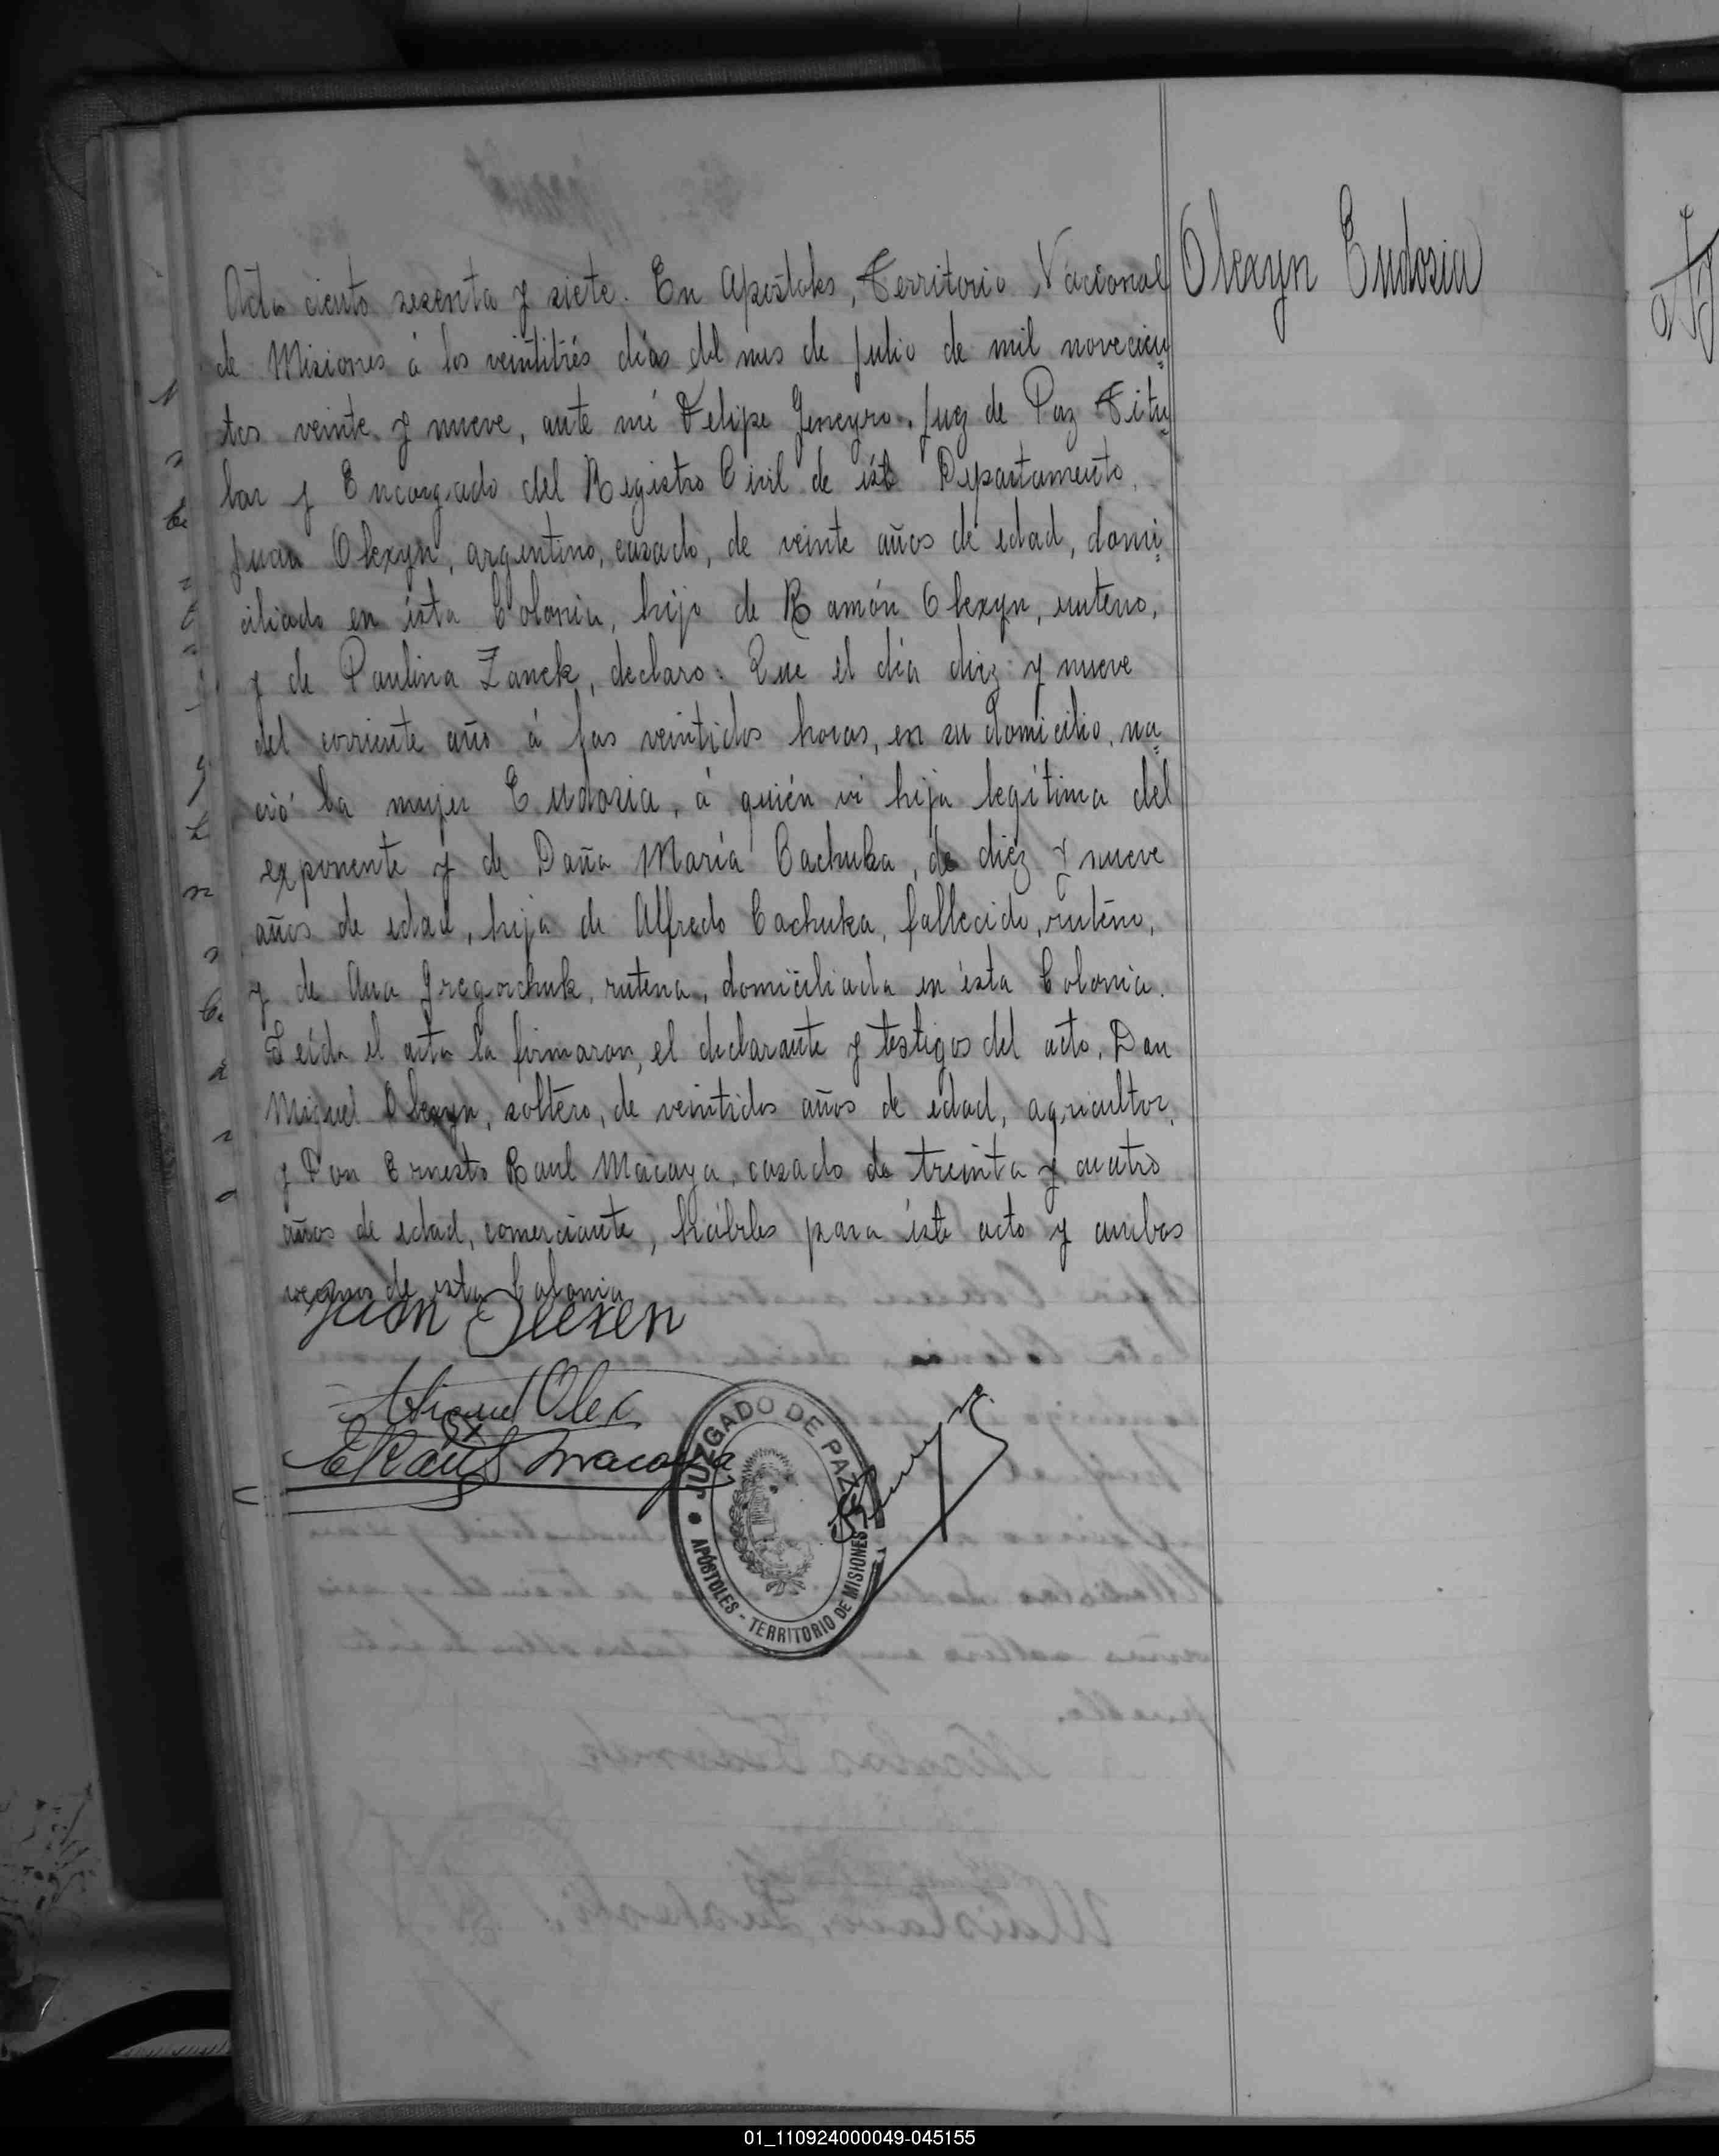 Olexyn Eudosia
Acta ciento sesenta y siete. En Apóstoles, Territorio Nacional
de Misiones á los veintitrés días del mes de Julio de mil novecien
tos veinte y nueve, ante mí Felipe Geneyro, Juez de Paz Titu
lar y Encargado del Registro Civil de éste Departamento,
Juan Olexyn, argentino, casado, de veinte años de edad, domi
ciliado en ésta Colonia, hijo de Ramón Olexyn, ruteno,
y de Paulina Zanek, declaro: Que el día diez y nueve
del corriente año á las veintidos horas, en su domicilio, na
ció la mujer Eudosia, á quién vi hija legítima del
exponente y de Doña María Cachuka, de diez y nueve
años de edad, hija de Alfredo Cachuka, fallecido, ruteno,
y de Ana Gregorchuk, rutena, domiciliada en ésta Colonia.
Leída el acta la firmaron, el declarante y testigos del acto, Don
Miguel Olexyn, soltero, de veintidos años de edad, agricultor,
y Don Ernesto Raul Macaya, casado de treinta y cuatro
años de edad, comerciante, hábiles para éste acto y ambos
vecinos de esta Colonia
Juan Olexen
Miguel Olex
ERaúl Macaya
JUZGADO DE PAZ
APÓSTOLES - TERRITORIO DE MISIONES
01_110924000049-045155